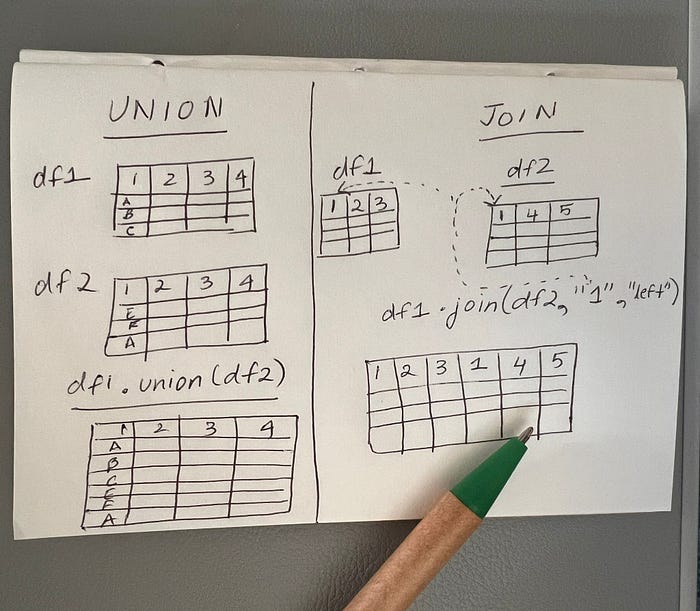 UNION
df1
1 2 3 4
A
B
C
df2
1 2 3 4
E
F
A
df1.union(df2)
1 2 3 4
A
B
C
E
F
A
JOIN
df1
1 2 3
df2
1 4 5
df1.join(df2, "1", "left")
1 2 3 1 4 5